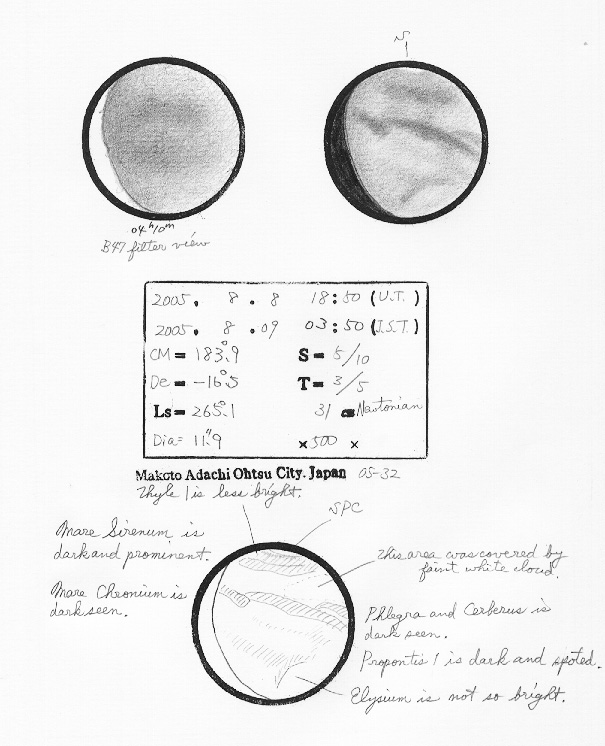 S
04h10m
B47 filter view
2005. 8 . 8 18:50 (U.T.)
2005. 8 .09 03:50 (J.S.T.)
CM = 183.°9 S = 5/10
De = -16.°5 T = 3/5
Ls = 265.°1 31 cm Newtonian
Dia = 11."9 ×500 ×
Makoto Adachi Ohtsu City. Japan 05-32
Thyle 1 is less bright.
SPC
Mare Sirenum is
dark and prominent.
this area was covered by
faint white cloud.
Mare Chronium is
dark seen.
Phlegra and Cerberus is
dark seen.
Propontis 1 is dark and spoted.
Elysium is not so bright.